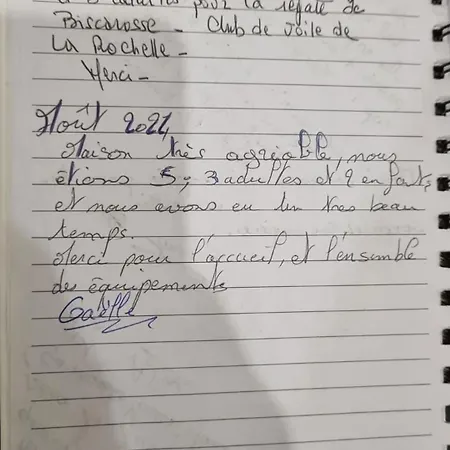 pour la régate de
Biscarosse - Club de Voile de
La Rochelle -
Merci -
Août 2021,
Maison très agréable, nous
étions 5, 3 adultes et 2 enfants,
et nous avons eu un très beau
temps.
Merci pour l'accueil, et l'ensemble
des équipements
Gaëlle